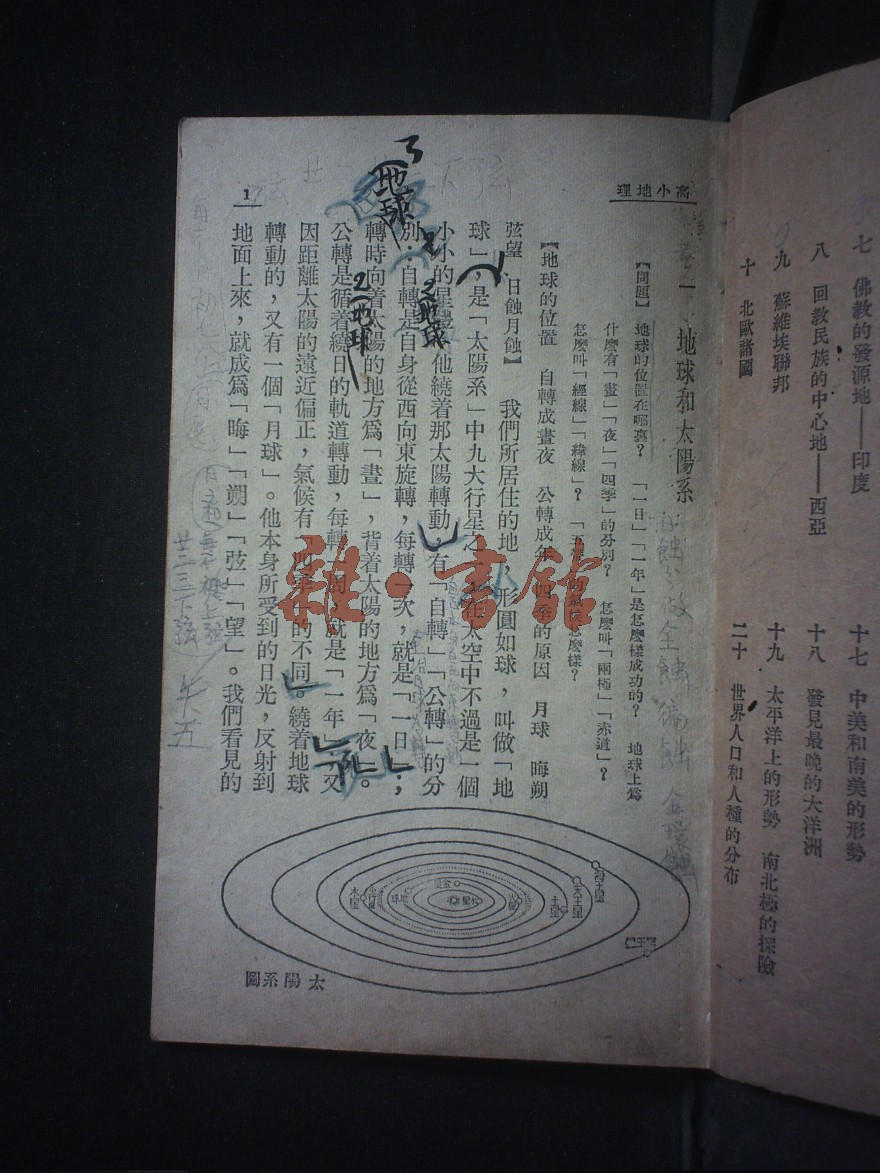 七　佛教的發源地——印度
八　回教民族的中心地——西亞
九　蘇維埃聯邦
十　北歐諸國
十七　中美和南美的形勢
十八　發見最晚的大洋洲
十九　太平洋上的形勢　南北極的探險
二十　世界人口和人種的分布
高小地理
一　地球和太陽系
【問題】　地球的位置在哪裏？　「一日」「一年」是怎麼樣成功的？　地球上爲
什麼有「晝」「夜」「四季」的分別？　怎麼叫「兩極」「赤道」？
怎麼叫「經線」「緯線」？　「五帶」的氣候怎麼樣？
【地球的位置　自轉成晝夜　公轉成年　四季的原因　月球　晦朔
弦望　日蝕月蝕】　我們所居住的地，形圓如球，叫做「地
球」，是「太陽系」中九大行星之一，在太空中不過是一個
小小的星體。他繞着那太陽轉動，有「自轉」「公轉」的分
別：自轉是自身從西向東旋轉，每轉一次，就是「一日」；
轉時向着太陽的地方爲「晝」，背着太陽的地方爲「夜」。
公轉是循着繞日的軌道轉動，每轉一周，就是「一年」，又
因距離太陽的遠近偏正，氣候有「四季」的不同。繞着地球
轉動的，又有一個「月球」。他本身所受到的日光，反射到
地面上來，就成爲「晦」「朔」「弦」「望」。我們看見的
1
地球
2地球
2地球
廿二三下弦
海王星
天王星
土星
火星
水星
金星
地球
小行星
木星
太陽系圖
雜·書館